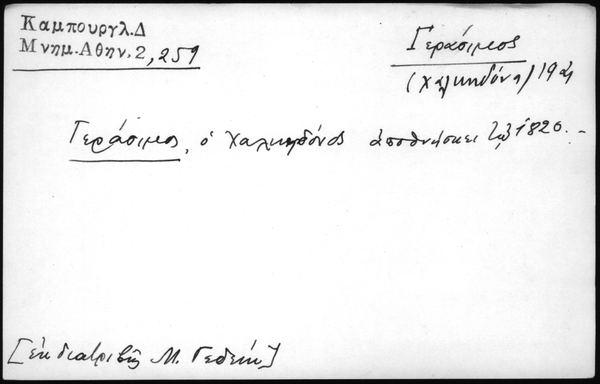 Καμπουργλ.Δ
Μνημ.Αθην.2,259
Γεράσιμος
(Χαλκηδόνα) 19
Γεράσιμος, ὁ Χαλκηδόνος ἀποθνήσκει τῷ 1820.-
[ἐκ διατριβῆς Μ. Γεδεών]